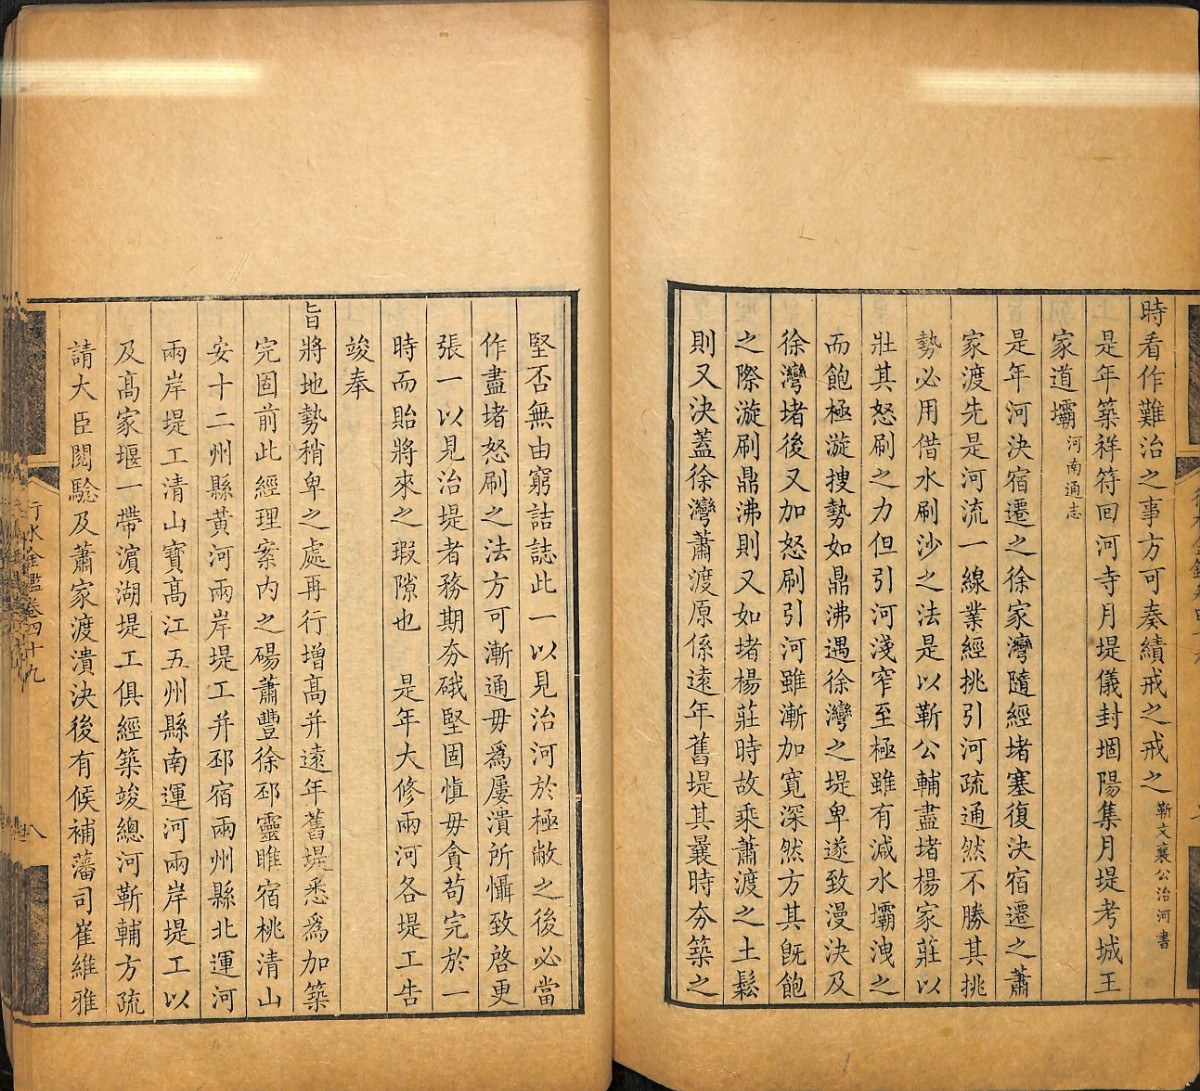 時看作難治之事方可奏績戒之戒之靳文襄公治河書
是年築祥符回河寺月堤儀封堌陽集月堤考城王
家道壩河南通志
是年河決宿遷之徐家灣隨經堵塞復決宿遷之蕭
家渡先是河流一線業經挑引河疏通然不勝其挑
勢必用借水刷沙之法是以靳公輔盡堵楊家莊以
壯其怒刷之力但引河淺窄至極雖有減水壩洩之
而飽極漩搜勢如鼎沸遇徐灣之堤卑遂致漫決及
徐灣堵後又加怒刷引河雖漸加寬深然方其旣飽
之際漩刷鼎沸則又如堵楊莊時故乘蕭渡之土鬆
則又決蓋徐灣蕭渡原係遠年舊堤其曩時夯築之
堅否無由窮詰誌此一以見治河於極敝之後必當
作盡堵怒刷之法方可漸通毋爲屢潰所懾致啓更
張一以見治堤者務期夯硪堅固慎毋貪苟完於一
時而貽將來之瑕隙也　是年大修兩河各堤工告
竣奉
旨將地勢稍卑之處再行增高并遠年舊堤悉爲加築
完固前此經理案內之碭蕭豐徐邳靈睢宿桃清山
安十二州縣黃河兩岸堤工并邳宿兩州縣北運河
兩岸堤工清山寶高江五州縣南運河兩岸堤工以
及高家堰一帶濵湖堤工俱經築竣總河靳輔方疏
請大臣閱驗及蕭家渡潰決後有候補藩司崔維雅
行水金鑑卷四十九
八